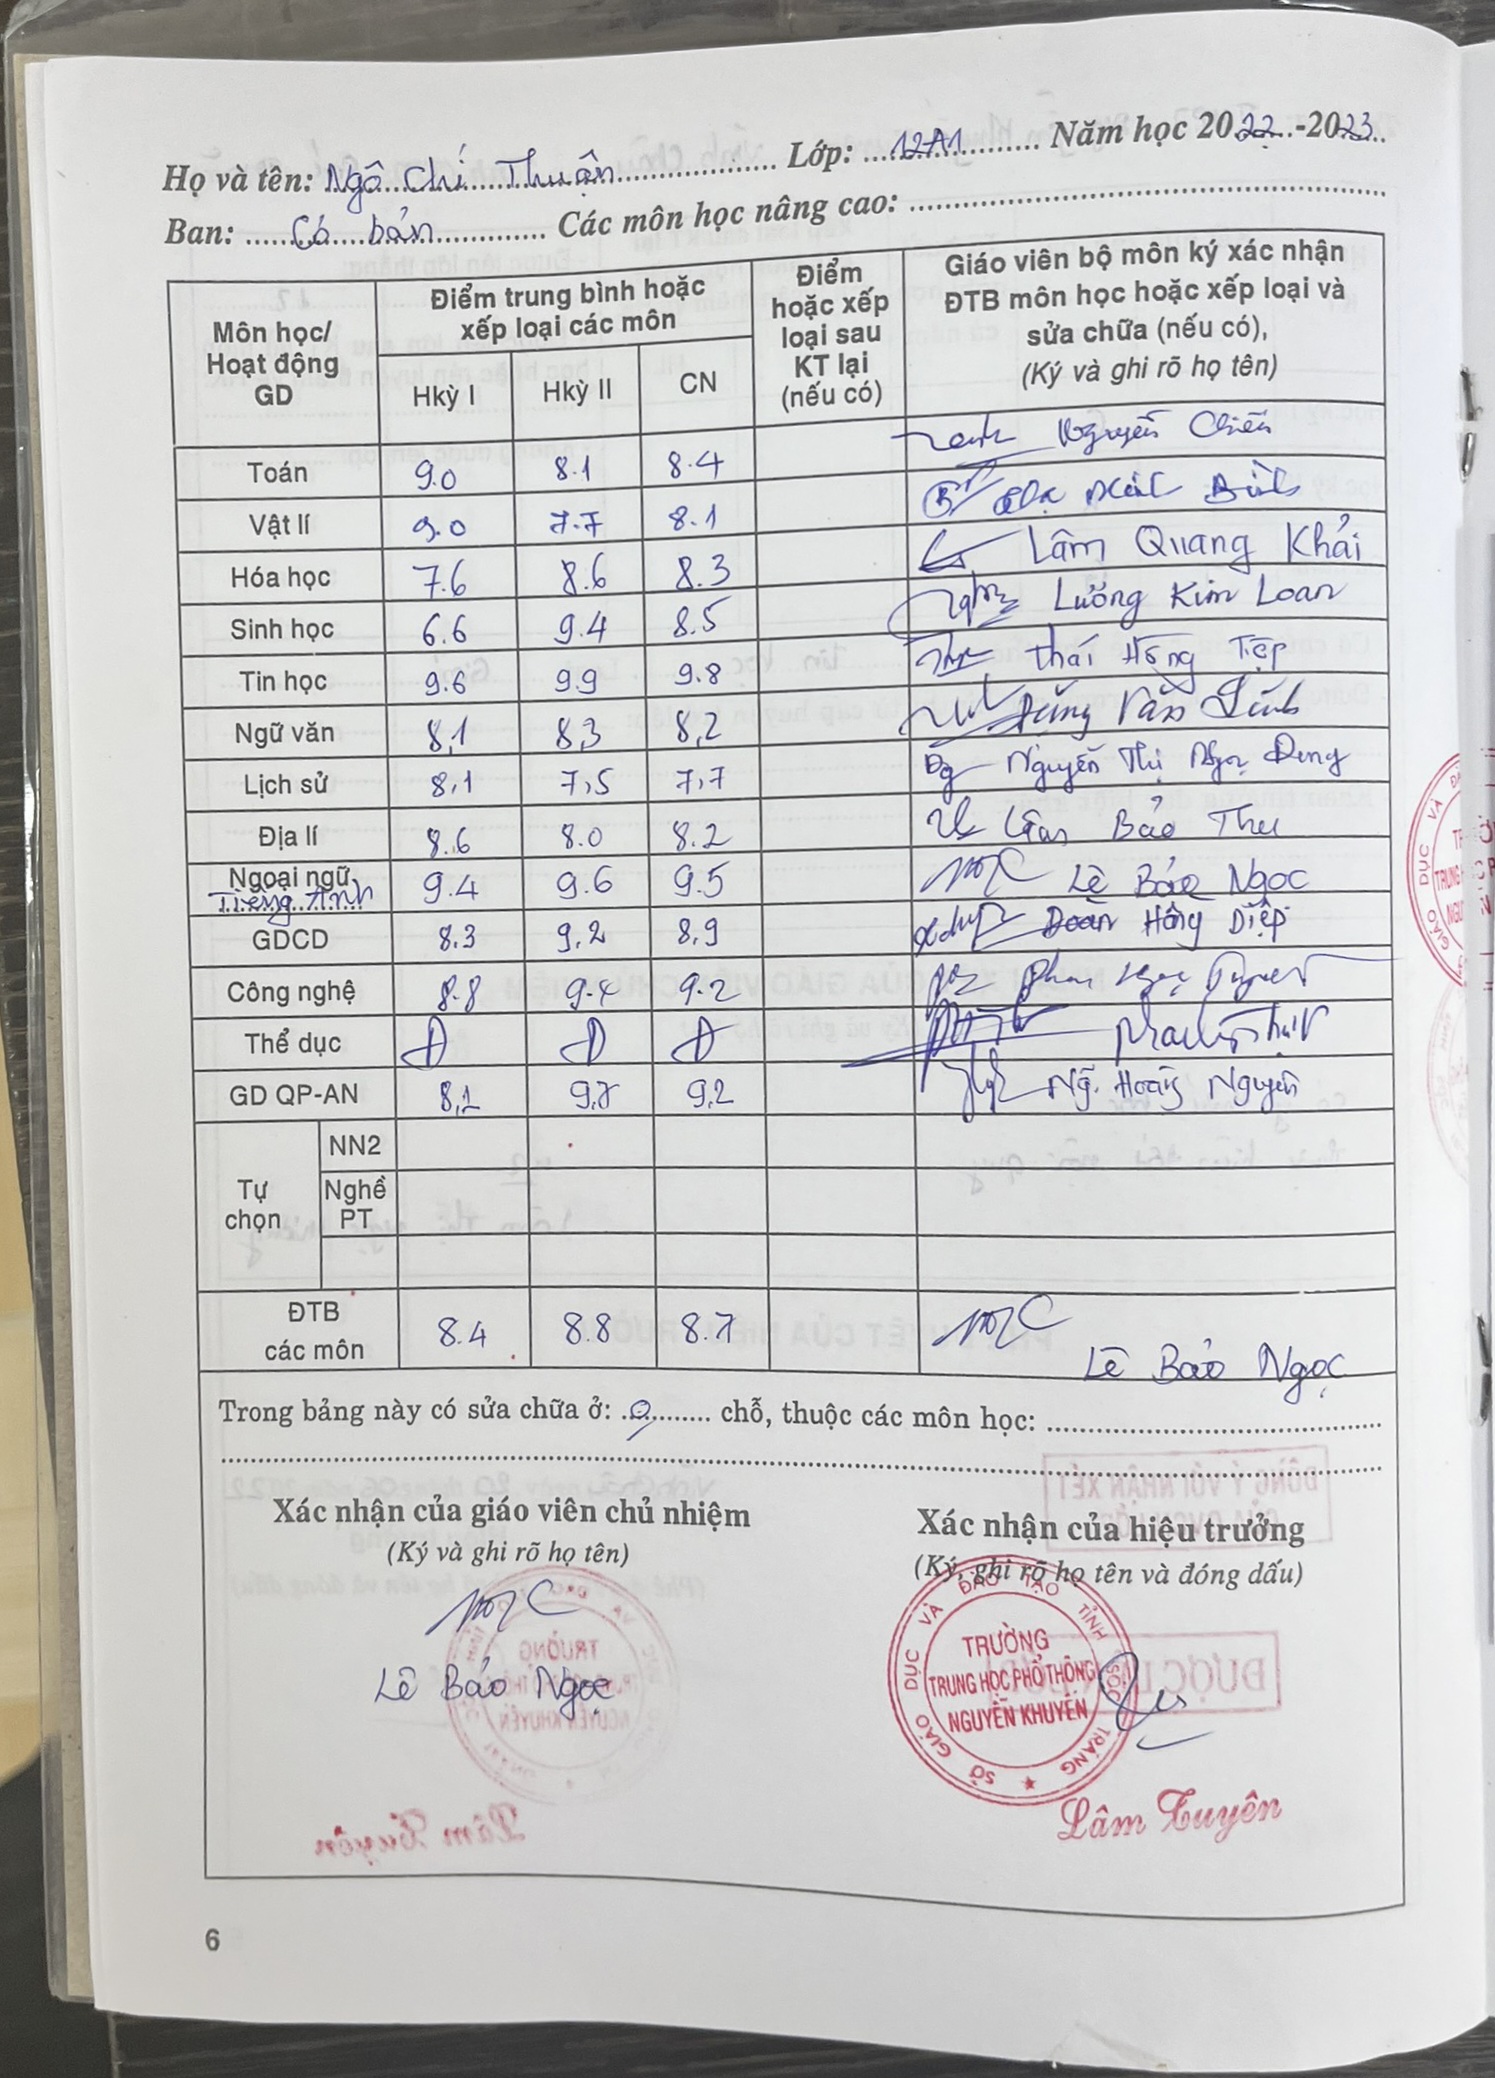 Họ và tên: Ngô Chí Thuận Lớp: 12A1 Năm học 2022-2023
Ban: Cơ bản Các môn học nâng cao:
Môn học/ Hoạt động GD | Điểm trung bình hoặc xếp loại các môn | Điểm hoặc xếp loại sau KT lại (nếu có) | Giáo viên bộ môn ký xác nhận ĐTB môn học hoặc xếp loại và sửa chữa (nếu có), (Ký và ghi rõ họ tên)
Hkỳ I | Hkỳ II | CN
Toán 9.0 8.1 8.4 Nguyễn Chiến
Vật lí 9.0 7.7 8.1
Hóa học 7.6 8.6 8.3 Lâm Quang Khải
Sinh học 6.6 9.4 8.5 Lương Kim Loan
Tin học 9.6 9.9 9.8 Thái Hồng Tiệp
Ngữ văn 8,1 8,3 8,2 Văn
Lịch sử 8,1 7,5 7,7 Nguyễn Thị Ngọc Dung
Địa lí 8.6 8.0 8.2 Bảo Thu
Ngoại ngữ Tiếng Anh 9.4 9.6 9.5 Lê Bảo Ngọc
GDCD 8.3 9,2 8,9 Đoàn Hồng Diệp
Công nghệ 8.8 9.4 9.2 Ngọc
Thể dục Đ Đ Đ
GD QP-AN 8,1 9,7 9,2 Ng. Hoàng Nguyên
Tự chọn
NN2
Nghề PT
ĐTB các môn 8.4 8.8 8.7
Lê Bảo Ngọc
Trong bảng này có sửa chữa ở: 0 chỗ, thuộc các môn học:
Xác nhận của giáo viên chủ nhiệm
(Ký và ghi rõ họ tên)
Lê Bảo Ngọc
Xác nhận của hiệu trưởng
(Ký, ghi rõ họ tên và đóng dấu)
SỞ GIÁO DỤC VÀ ĐÀO TẠO TỈNH SÓC TRĂNG
TRƯỜNG
TRUNG HỌC PHỔ THÔNG
NGUYỄN KHUYẾN
Lâm Tuyên
6